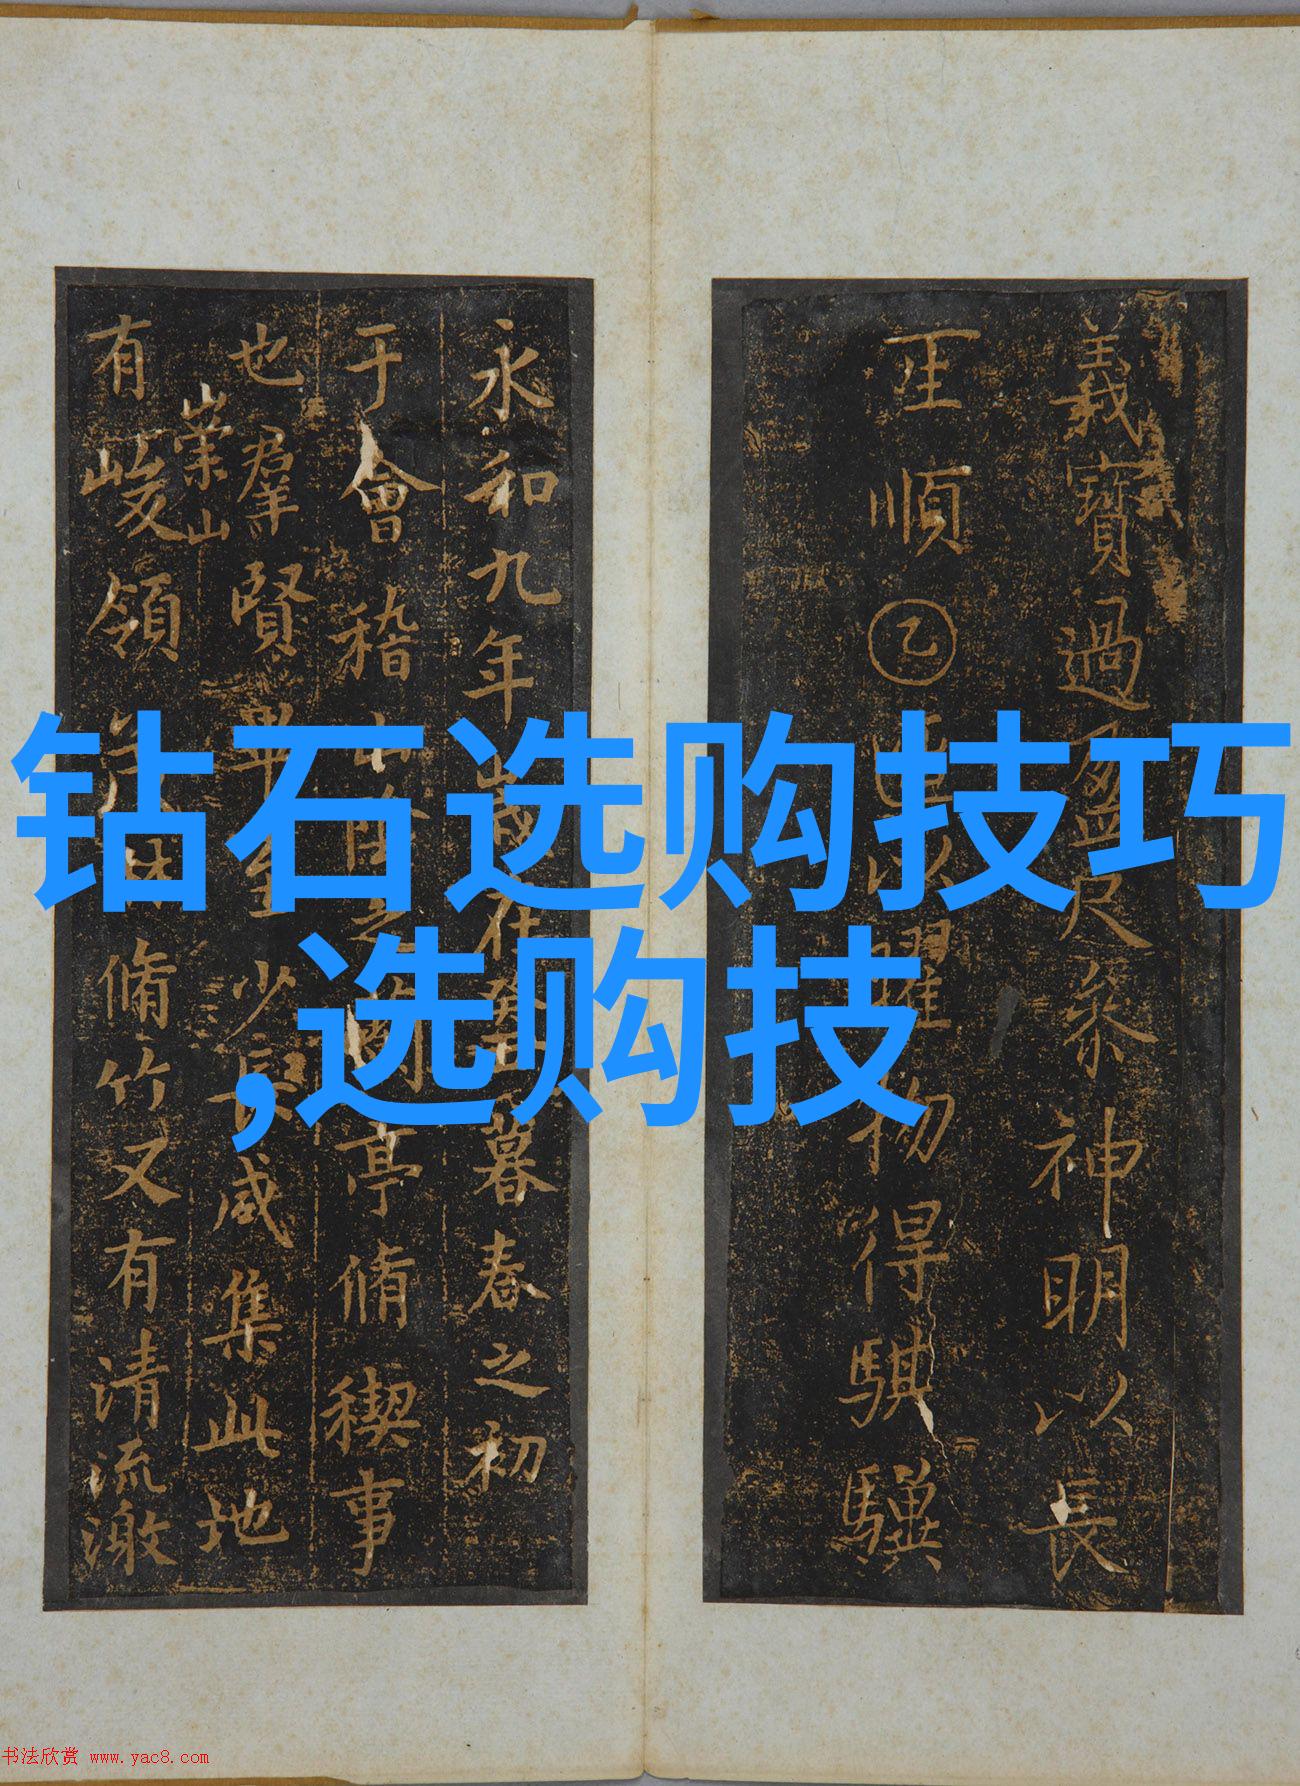 钻石选购技巧
,选购技
義寶過盈尺衆神明以長
順乙以耀物得騏驥
永和九年歲在癸丑暮春之初
于會稽山陰之蘭亭脩禊事
也羣賢畢至少長咸集此地
崇山
有峻領茂林脩竹又有清流激
书法欣赏 www.yac8.com